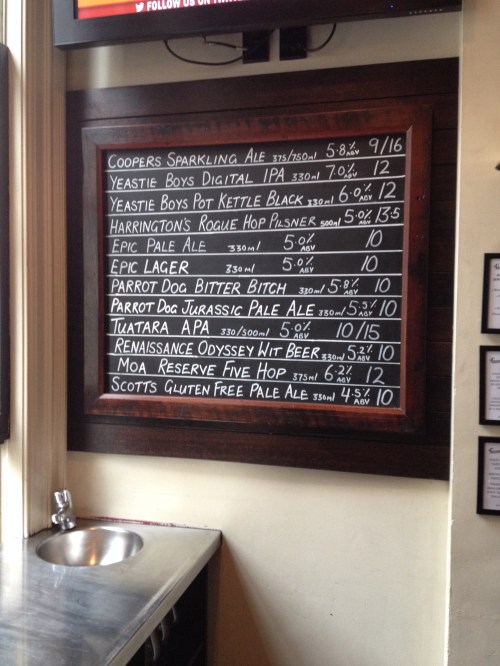 FOLLOW US ON
COOPERS SPARKLING ALE 375/750ml 5.8% ABV 9/16
YEASTIE BOYS DIGITAL IPA 330ml 7.0% ABV 12
YEASTIE BOYS POT KETTLE BLACK 330ml 6.0% ABV 12
HARRINGTON'S ROGUE HOP PILSNER 500ml 5.0% ABV 13.5
EPIC PALE ALE 330ml 5.0% ABV 10
EPIC LAGER 330ml 5.0% ABV 10
PARROT DOG BITTER BITCH 330ml 5.8% ABV 10
PARROT DOG JURASSIC PALE ALE 330ml 5.5% ABV 10
TUATARA APA 330/500ml 5.0% ABV 10/15
RENAISSANCE ODYSSEY WIT BEER 330ml 5.2% ABV 10
MOA RESERVE FIVE HOP 375ml 6.2% ABV 12
SCOTTS GLUTEN FREE PALE ALE 330ml 4.5% ABV 10